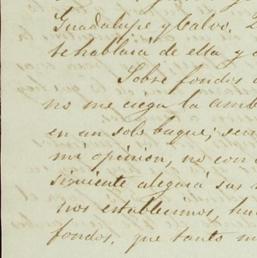 Guadalupe y Calvo.
te hablará de ella y
Sobre fondos
no me ciega la amb
en un solo buque; sin
mi opinion, no con
siguiente alegará sus
nos establecimos, hu
fondos, que tanto m